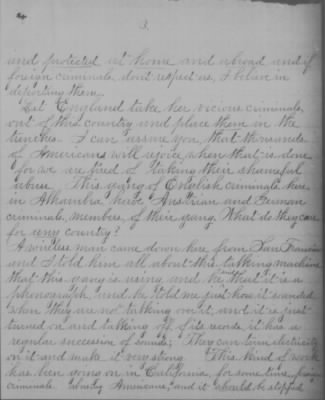 3.
and protected at home and abroad and if
foreign criminals don't respect us, I believe in
deporting them.
Let England take her vicious criminals
out of this country and place them in the
trenches. I can assure you, that thousands
of Americans will rejoice when that is done
for we are tired of taking their shameful
abuse. This gang of English criminals here
in Alhambra have Austrian and German
criminals, members of their gang. What do they care
for any country?
A wireless man came down here from San Francisco
and I told him all about this talking machine
that this gang is using and he said that it is a
phonograph and he told me just how it sounded
when they are not talking on it, and it is just
turned on and talking off records it has a
regular succession of sounds; They can turn electricity
on it and make it very strong. This kind of work
has been going on in California for some time, foreign
criminals abusing Americans, and it should be stopped